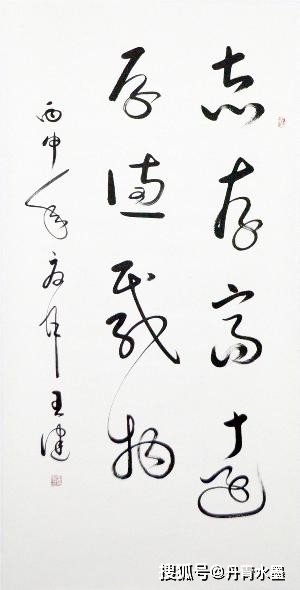 志存高遠
厚德載物
丙申年
王健
搜狐号@丹青水墨